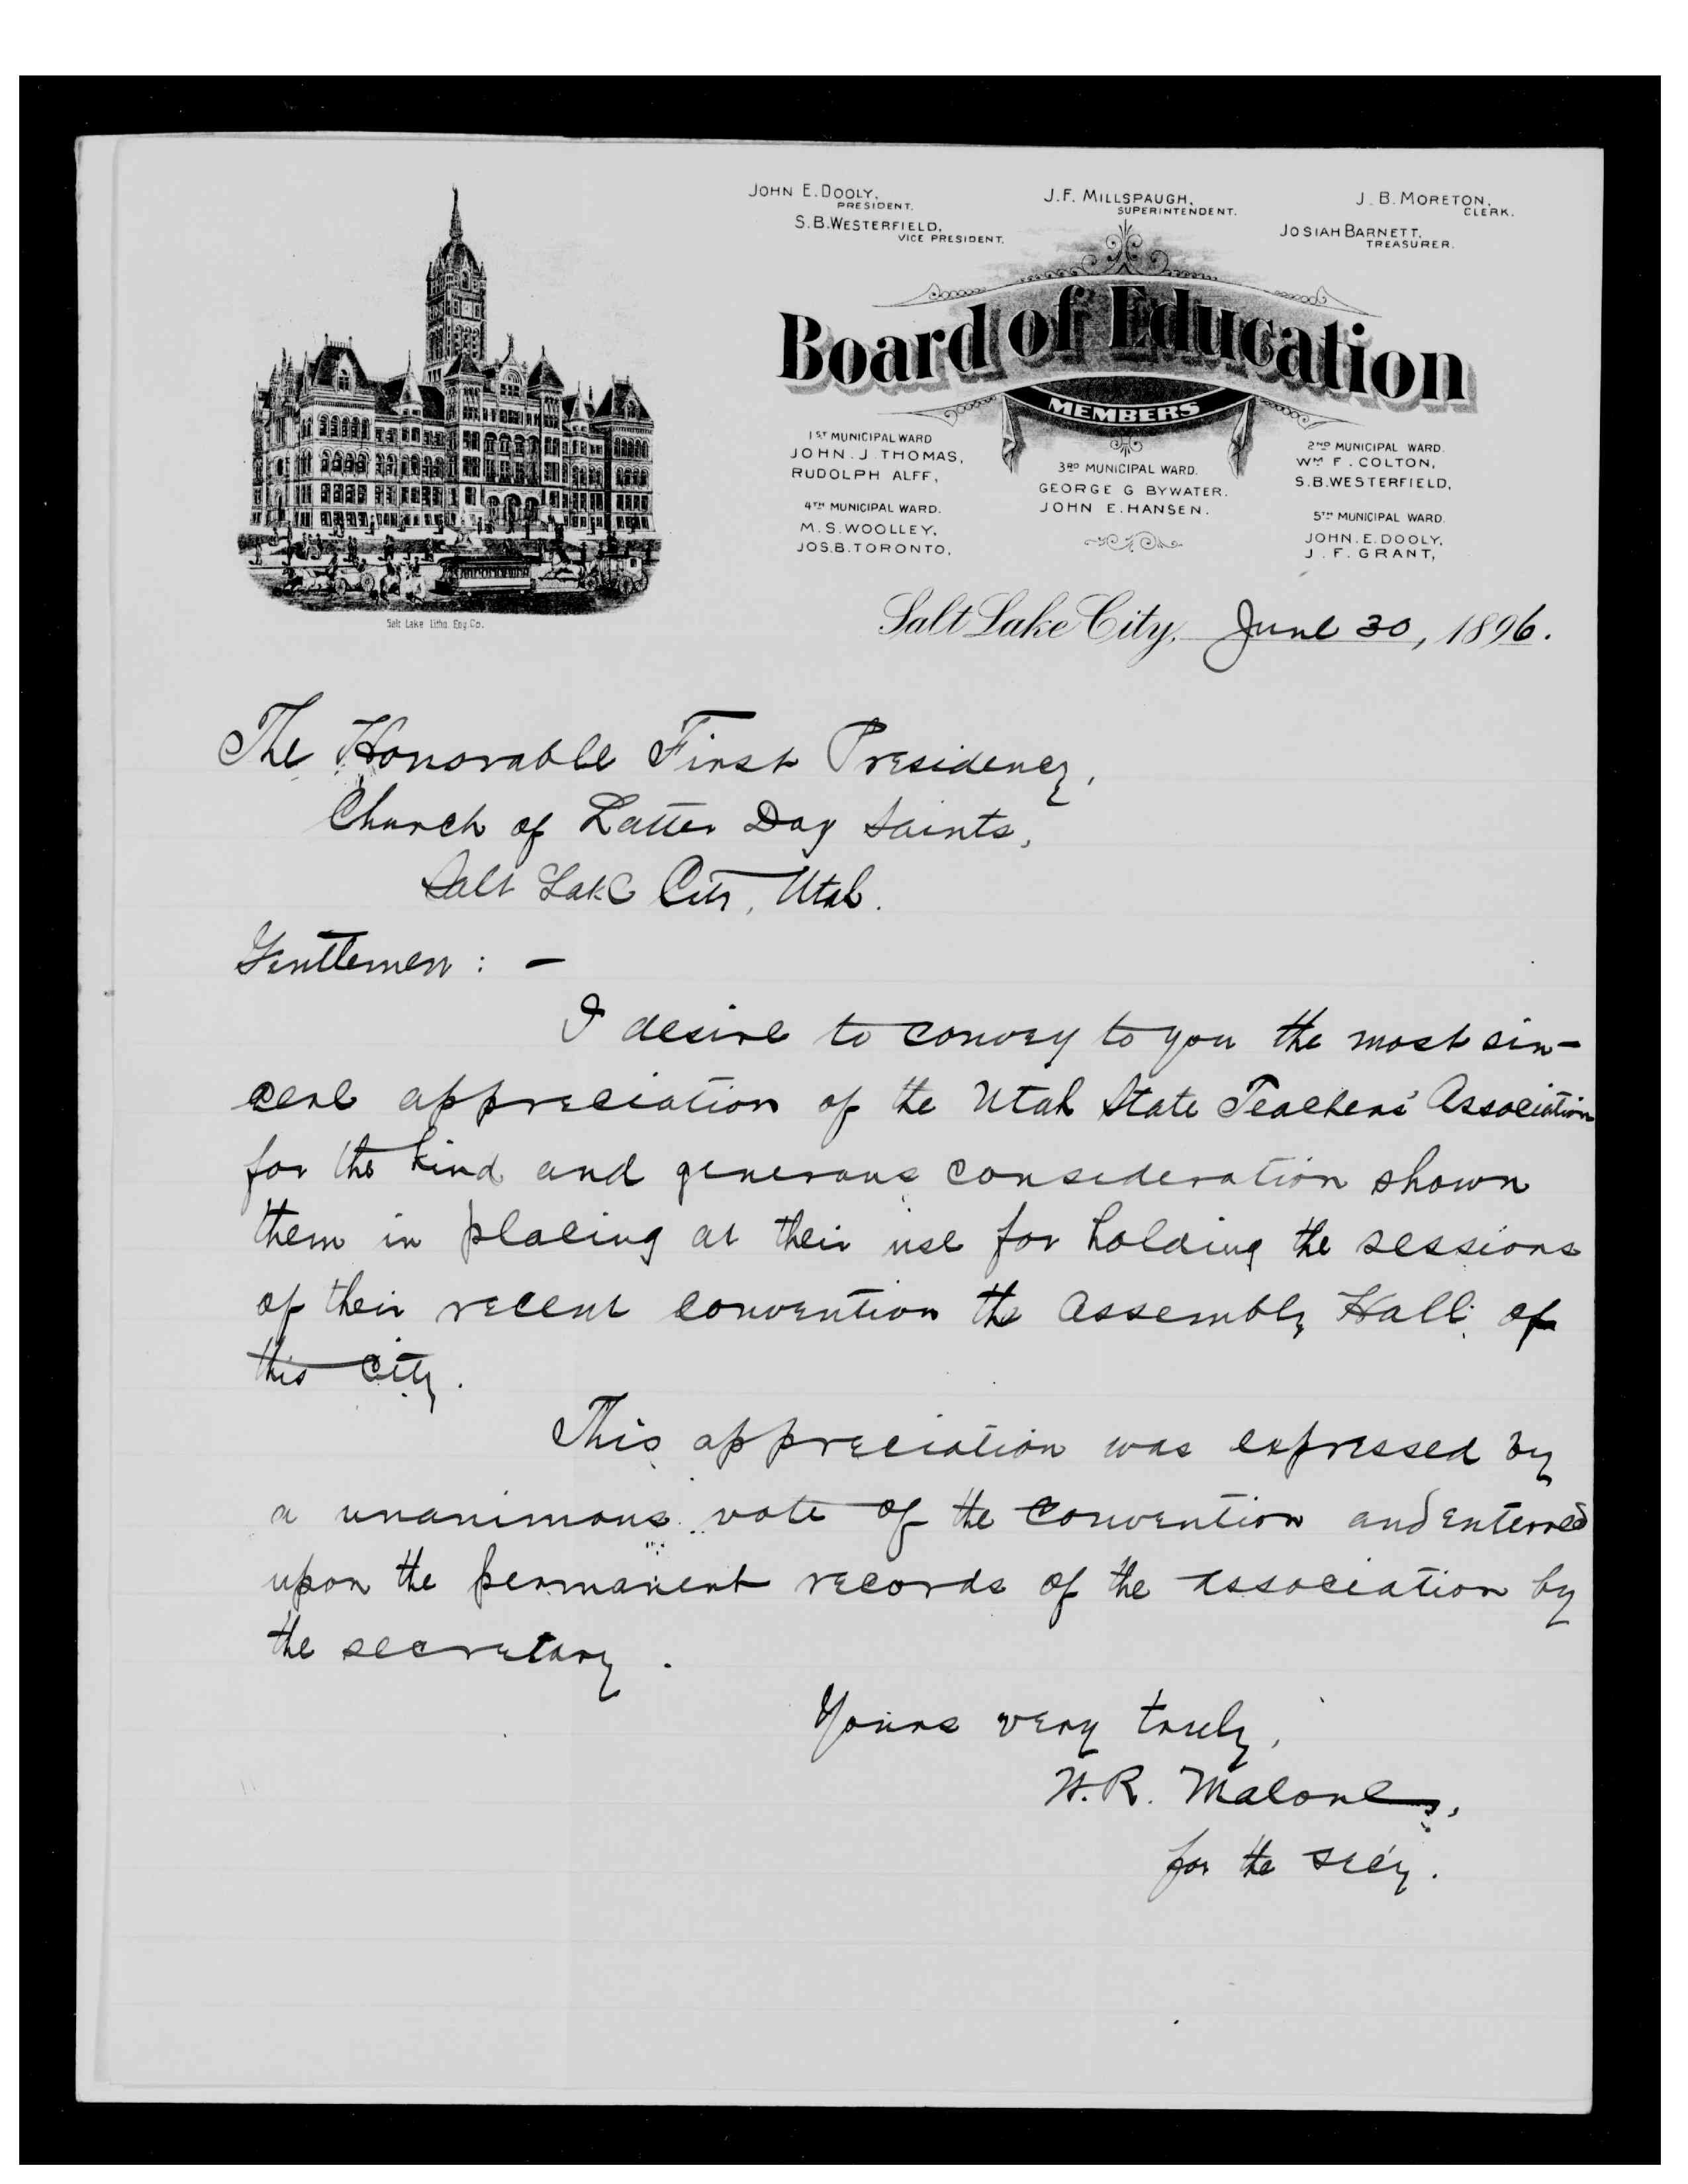 JOHN E. DOOLY,
PRESIDENT.
S.B. WESTERFIELD,
VICE PRESIDENT.
J.F. MILLSPAUGH,
SUPERINTENDENT.
J. B. MORETON,
CLERK.
JOSIAH BARNETT,
TREASURER.
Board of Education
MEMBERS
1ST MUNICIPAL WARD
JOHN. J. THOMAS,
RUDOLPH ALFF,
4TH MUNICIPAL WARD.
M.S. WOOLLEY,
JOS.B.TORONTO,
3RD MUNICIPAL WARD.
GEORGE G BYWATER.
JOHN E. HANSEN.
2ND MUNICIPAL WARD.
WM F. COLTON,
S.B. WESTERFIELD,
5TH MUNICIPAL WARD.
JOHN. E. DOOLY,
J. F. GRANT,
Salt Lake Litho. Eng. Co.
Salt Lake City, June 30, 1896.
The Honorable First Presidency,
Church of Latter Day Saints,
Salt Lake City, Utah.
Gentlemen: –
I desire to convey to you the most sin-
cere appreciation of the Utah State Teachers' Association
for the kind and generous consideration shown
them in placing at their use for holding the sessions
of their recent convention the Assembly Hall of
this city.
This appreciation was expressed by
a unanimous vote of the convention and enterred
upon the permanent records of the association by
the secretary.
Yours very truly,
W.R. Malone,
for the sec'y.